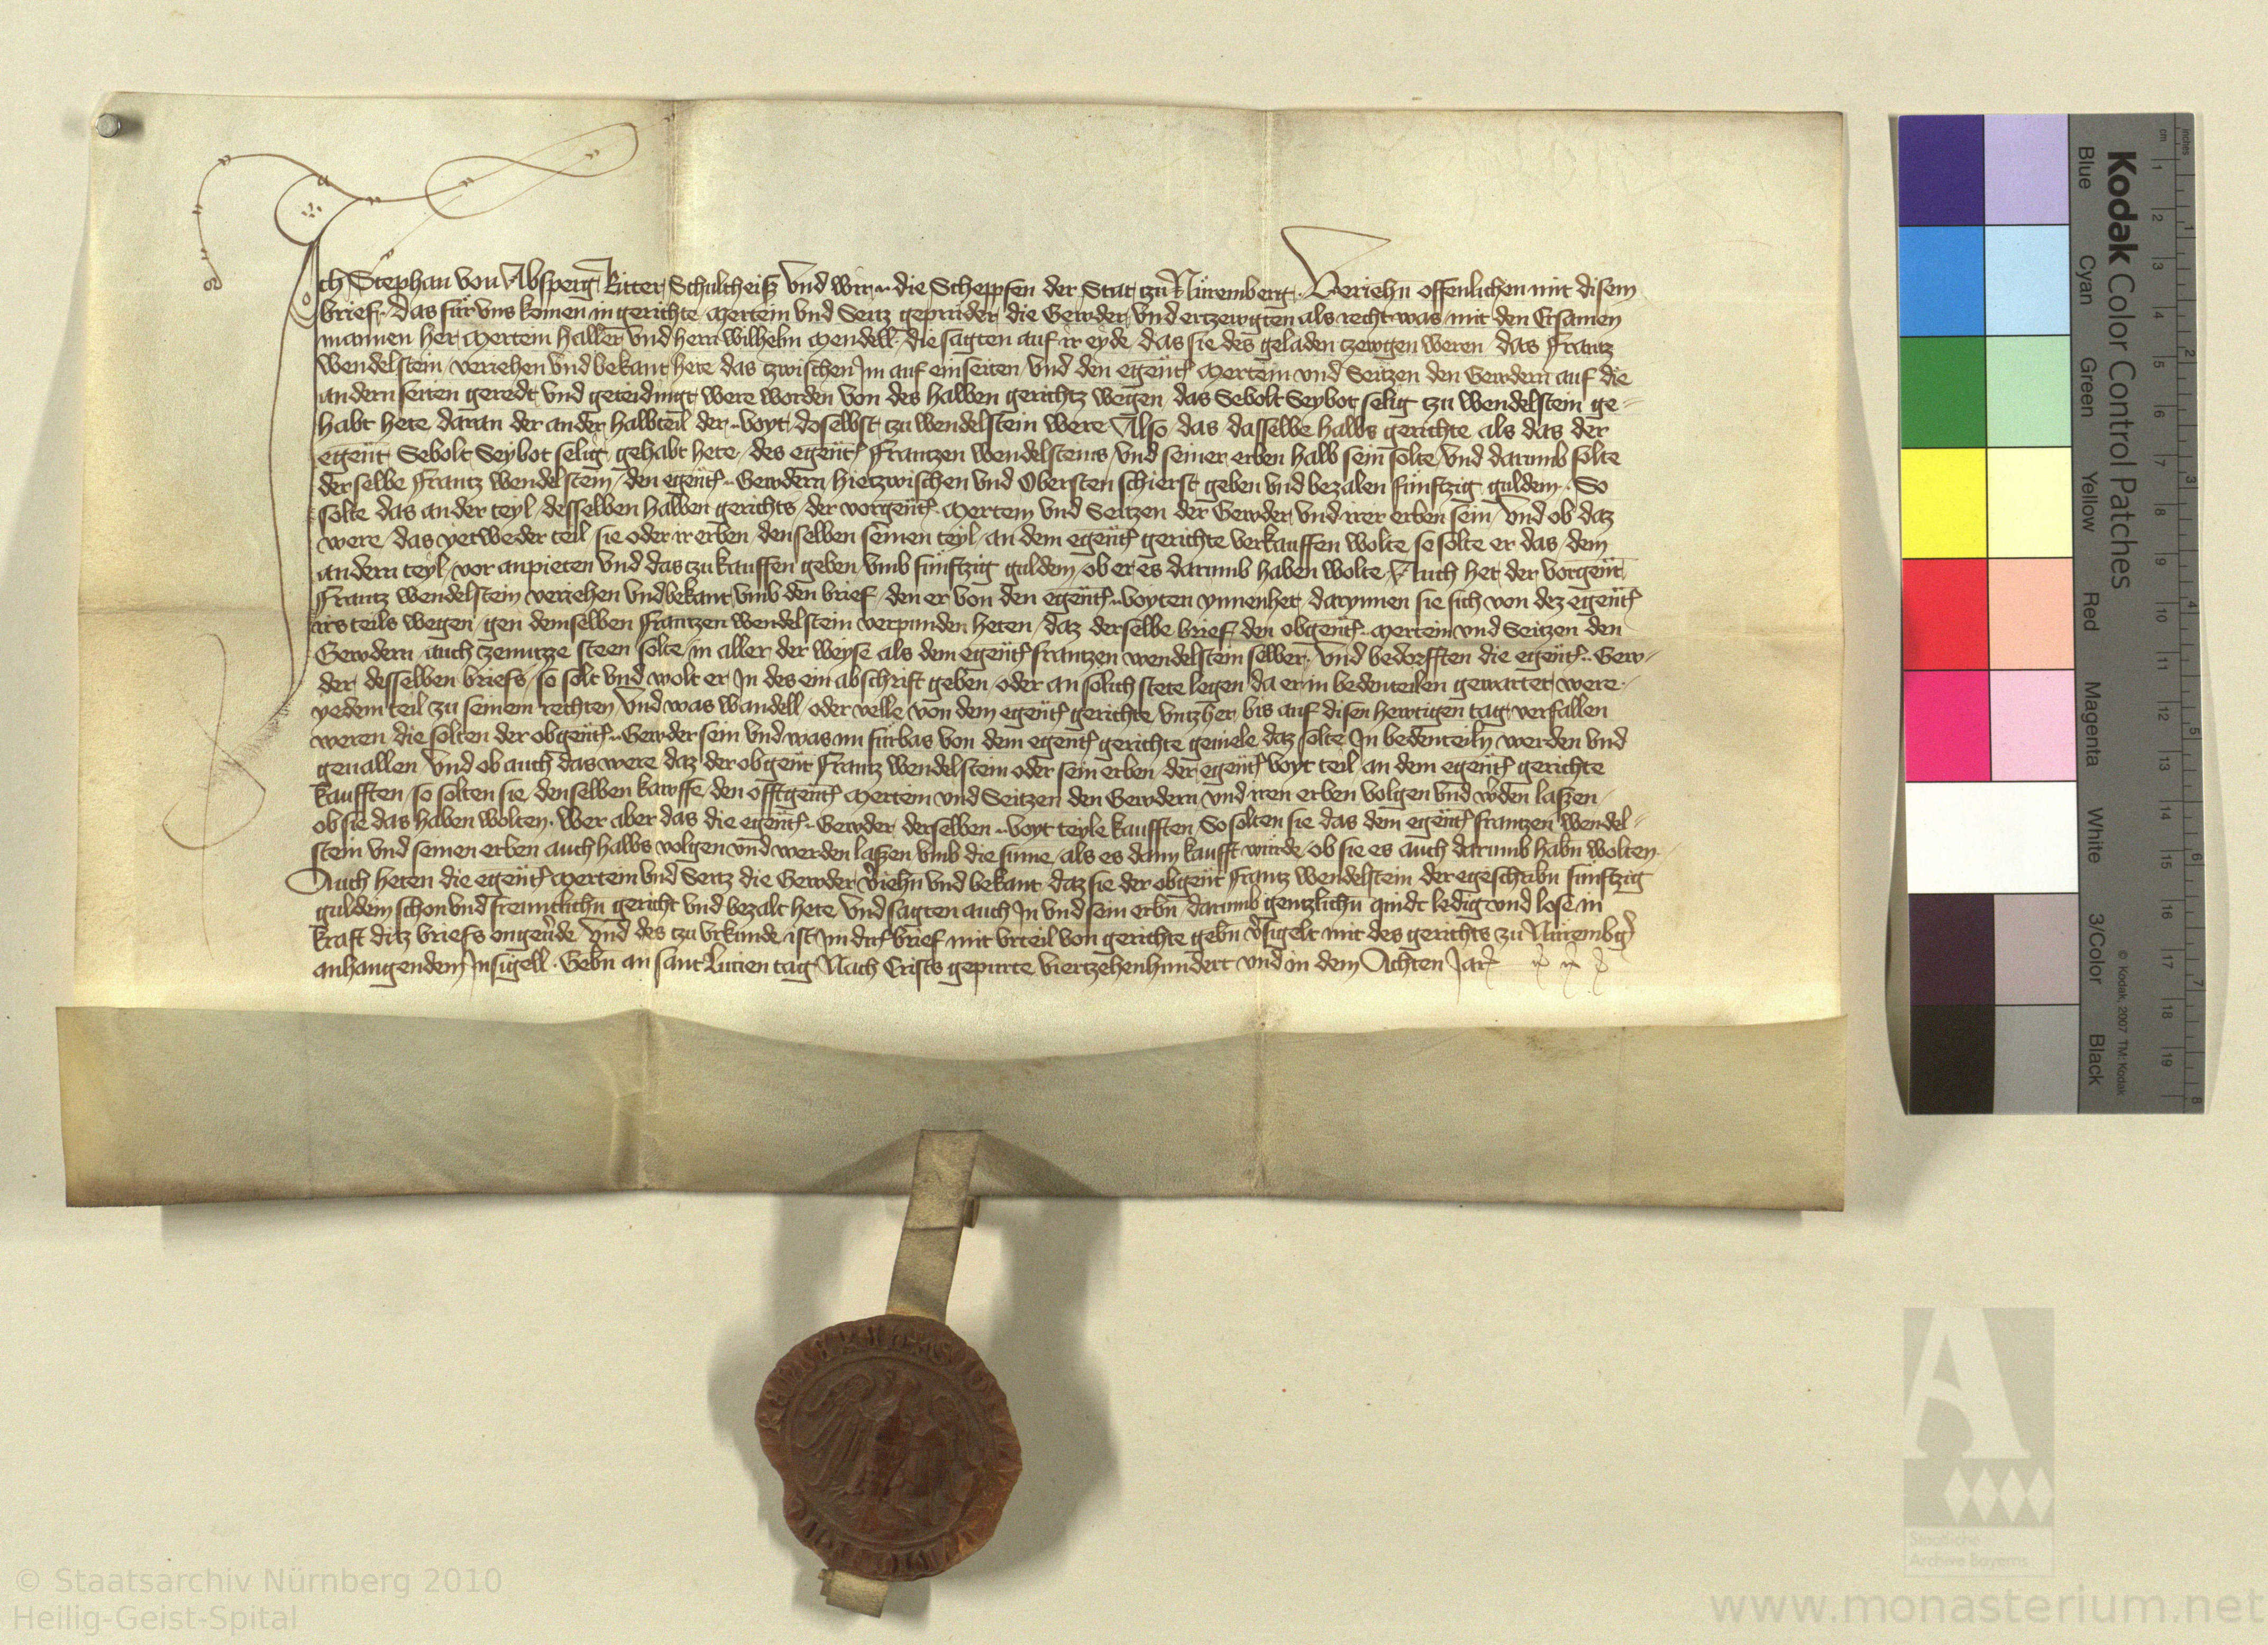 Ich Stephan von Absperg Ritter Schultheisz vnd wir die Scheppfen der Stat zu Nüremberg Veriehn offenlichen mit disem
brief das für vns komen in gerichte Mertein vnd Seitz geprüder die Gewder vnd ertzewgten als recht was mit den Ersamen
mannen her Mertein Haller vnd herr Wilhelm Mendell die sagten auf ir eyde das sie des geladen tzewgen weren das Frantz
Wendelstein veriehen vnd bekant hete das zwischen Im auf einseiten vnd den egent͂ Mertein vnd Seitzen den Gewdern auf die
andern seiten geredt vnd geteidingt were worden von des halben gerichtz wegen das Sebolt Seybot selig zu Wendelstein ge-
habt hete daran der ander halbteil der voyt doselbst zu Wendelstein were Also das dasselbe halbs gerichte als das der
egent͂ Sebolt Seybot selig gehabt hete des egent͂ Frantzen Wendelsteins vnd seiner erben halb sein solte vnd darumb solte
derselbe Frantz Wendelstein den egent͂ Gewdern hietzwischen vnd Obersten schierst geben vnd bezalen fünftzig guldein So
solte das ander teyl desselben halben gerichts der vorgent͂ Mertein vnd Seitzen der Gewder vnd irer erben sein vnd ob daz
were das yetweder teil sie oder ir erben denselben seinen teyl an dem egent͂ gerichte verkauffen wolte so solte er das dem
andern teyl vor anpieten vnd das zu kauffen geben vmb fünftzig guldein ob er es darumb haben wolte Auch het der vorgent͂
Frantz Wendelstein veriehen vnd bekant vmb den brief den er von den egent͂ voyten ynnenhet darynnen sie sich von dez egent͂
irs teils wegen gen demselben Frantzen Wendelstein verpunden heten daz derselbe brief den obgent͂ Mertein vnd Seitzen den
Gewdern auch zenutze steen solte in aller der weyse als dem egent͂ Frantzen Wendelstein selber vnd bedorfften die egent͂ Gew-
der desselben briefs so solt vnd wolt er In des ein abschrift geben oder an sölich stete legen da er in bedenteilen gewartet were
yedem teil zu seinem rechten vnd was wandell oder velle von dem egent͂ gerichte vntzher bis auf disen hewtigen tag verfallen
weren die solten der obgent͂ Gewder sein vnd was nu fürbas von dem egent͂ gerichte geuiele daz solte In bedenteiln werden vnd
geuallen vnd ob auch das were daz der obgent͂ Frantz Wendelstein oder sein erben der egent͂ voyt teil an dem egent͂ gerichte
kaufften so solten sie denselben kawffe den offtgent͂ Mertein vnd Seitzen den Gewdern vnd iren erben volgen vnd w͛den laszen
ob sie das haben wolten Wer aber das die egent͂ Gewder derselben voyt teyle kaufften So solten sie das dem egent͂ Frantzen Wendel-
stein vnd seinen erben auch halbs volgen vnd werden laszen vmb die sume als es dann kaufft würde ob sie es auch darumb habn wolten
Auch heten die egent͂ Mertein vnd Seitz die Gewder v͛iehn vnd bekant daz sie der obgent͂ Frantz Wendelstein der egeschribn fünftzig
guldein schon vnd freuntlichn gericht vnd bezalt hete vnd sagten auch In vnd sein erbn darumb gentzlichn quidt ledig vnd lose in
kraft ditz briefs ongeu͛de Vnd des zu vrkunde ist In dirr͛ brief mit vrteil von gerichte gebn v͛sigelt mit des gerichts zu Nürembg͛
anhangendem Insigell Gebn an sant Lucien tag Nach Crists gepurte viertzehenhundert vnd in dem Achten Jar͛
Kodak Color Control Patches
Blue Cyan Green Yellow Red Magenta White 3/Color Black
© Kodak, 2007 TM: Kodak
cm 1 2 3 4 5 6 7 8 9 10 11 12 13 14 15 16 17 18 19
inches 1 2 3 4 5 6 7 8
Staatliche
Archive Bayerns
© Staatsarchiv Nürnberg 2010
Heilig-Geist-Spital
www.monasterium.net